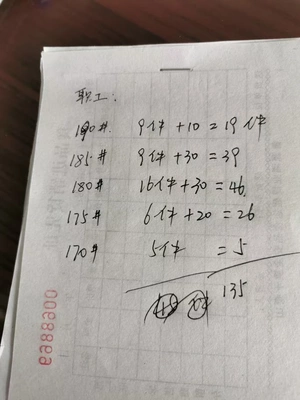 职工：
190# 9件+10=19件
185# 9件+30=39
180# 16件+30=46
175# 6件+20=26
170# 5件 =5
135
0068869